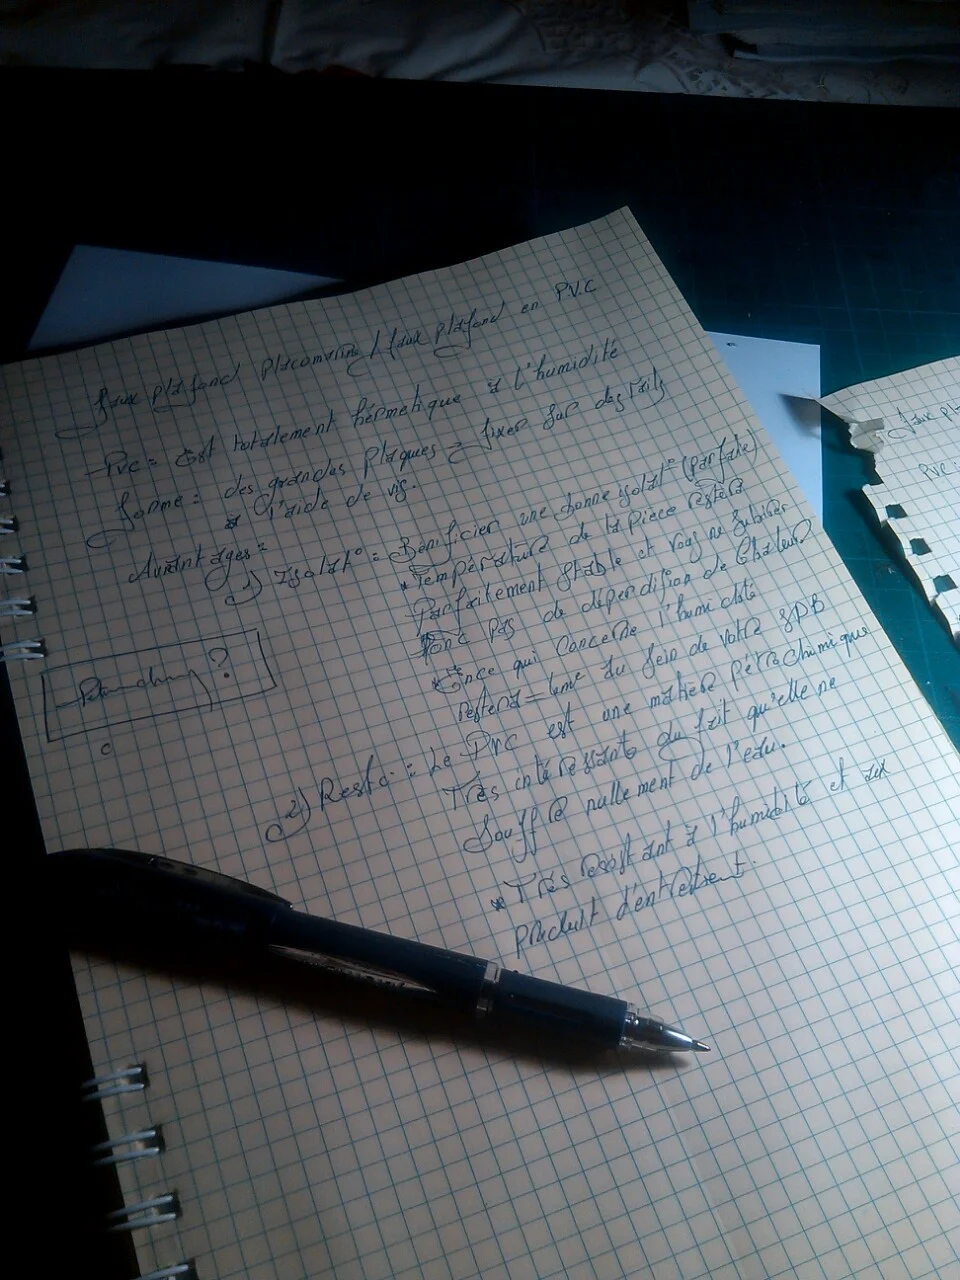 faux plafond placomarine / faux plafond en P.V.C
- Pvc = Est totalement hérmetique à l'humidité
forme = des grandes plaques = fixer sur des rails
à l'aide de vis.
Avantages =
1) Isolat° = Bénificier une bonne isolat° (parfaite)
* Température de la pièce restera
Parfaitement stable et vous ne subirez
donc pas de déperdition de chaleur
* Ence qui concerne l'humidité
restera = du sein de votre SDB
2) Resto = Le PVC est une matière pétrochimique
Très intéressante du fait qu'elle ne
souffre nullement de l'eau.
* Très resistant à l'humidité et aux
produit d'entretient.
?
faux pla
PVC =